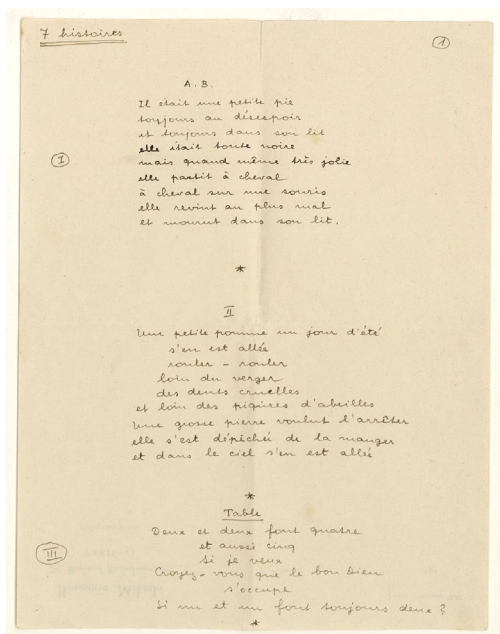 7 histoires
1
A. B.
Il était une petite pie
toujours au désespoir
et toujours dans son lit
elle était toute noire
I
mais quand même très jolie
elle partit à cheval
à cheval sur une souris
elle revint au plus mal
et mourut dans son lit.
*
II
Une petite pomme un jour d'été
s'en est allée
rouler - rouler
loin du verger
des dents cruelles
et loin des piqûres d'abeilles
Une grosse pierre voulut l'arrêter
elle s'est dépêchée de la manger
et dans le ciel s'en est allée
*
Table
Deux et deux font quatre
et aussi cinq
III
si je veux
Croyez-vous que le bon Dieu
s'occupe
Si un et un font toujours deux ?
*